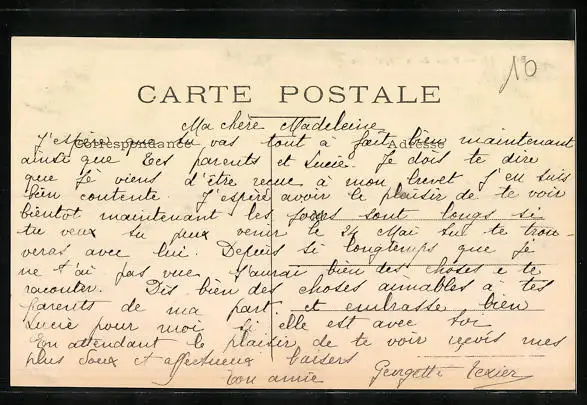 10
CARTE POSTALE
Ma chère Madeleine
Correspondance
Adresse
J'espère que tu vas tout à fait bien maintenant
ainsi que tes parents et Lucie. Je dois te dire
que je viens d'être reçue à mon brevet J'en suis
bien contente. J'espère avoir le plaisir de te voir
bientôt maintenant les jours sont longs si
tu veux tu peux venir le 24 Mai tu te trou-
veras avec lui. Depuis si longtemps que je
ne t'ai pas vue j'aurai bien des choses à te
raconter. Dis bien des choses aimables à tes
parents de ma part et embrasse bien
Lucie pour moi si elle est avec toi
En attendant le plaisir de te voir reçois mes
plus doux et affectueux baisers
Ton amie Georgette Texier